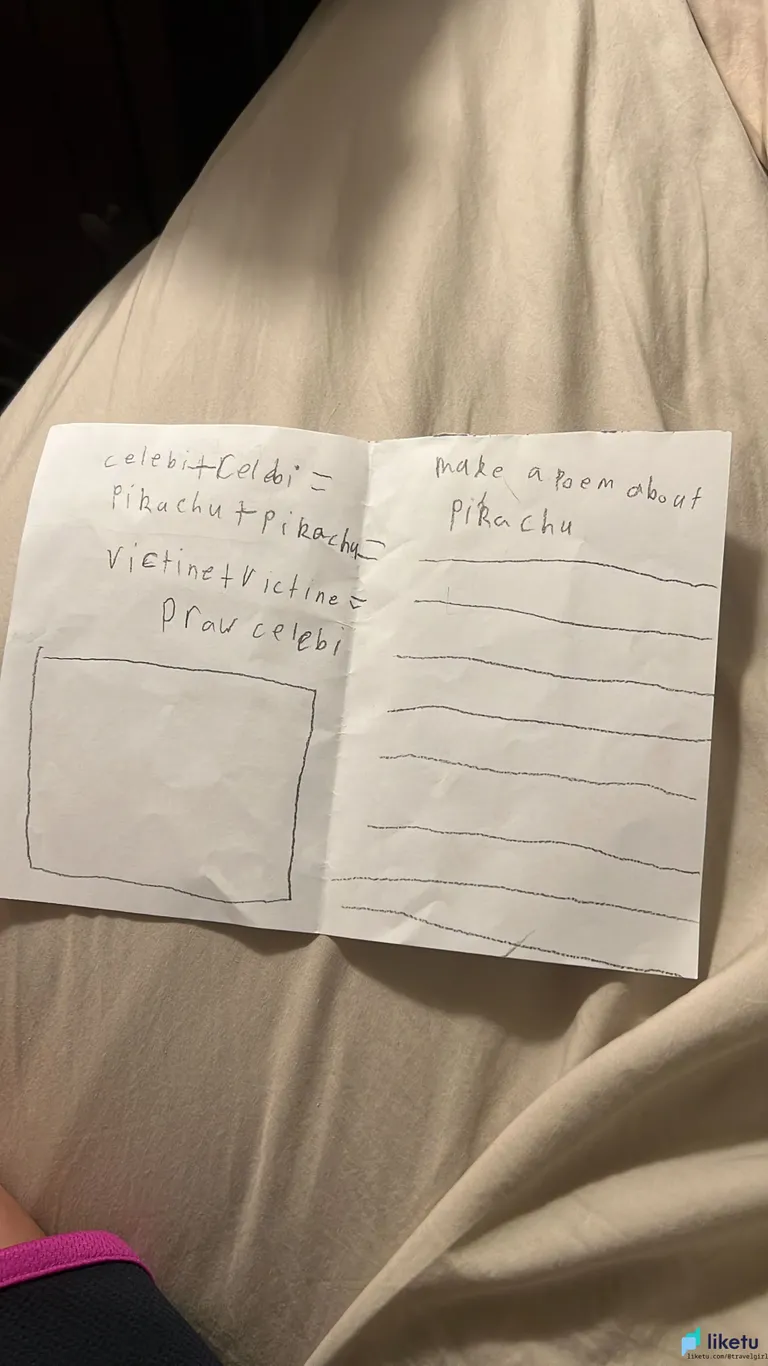 celebi+Celebi =
Pikachu + Pikachu=
Victine+Victine=
Draw celebi
make a Poem about
Pikachu
liketu
liketu.com/@travelgirl